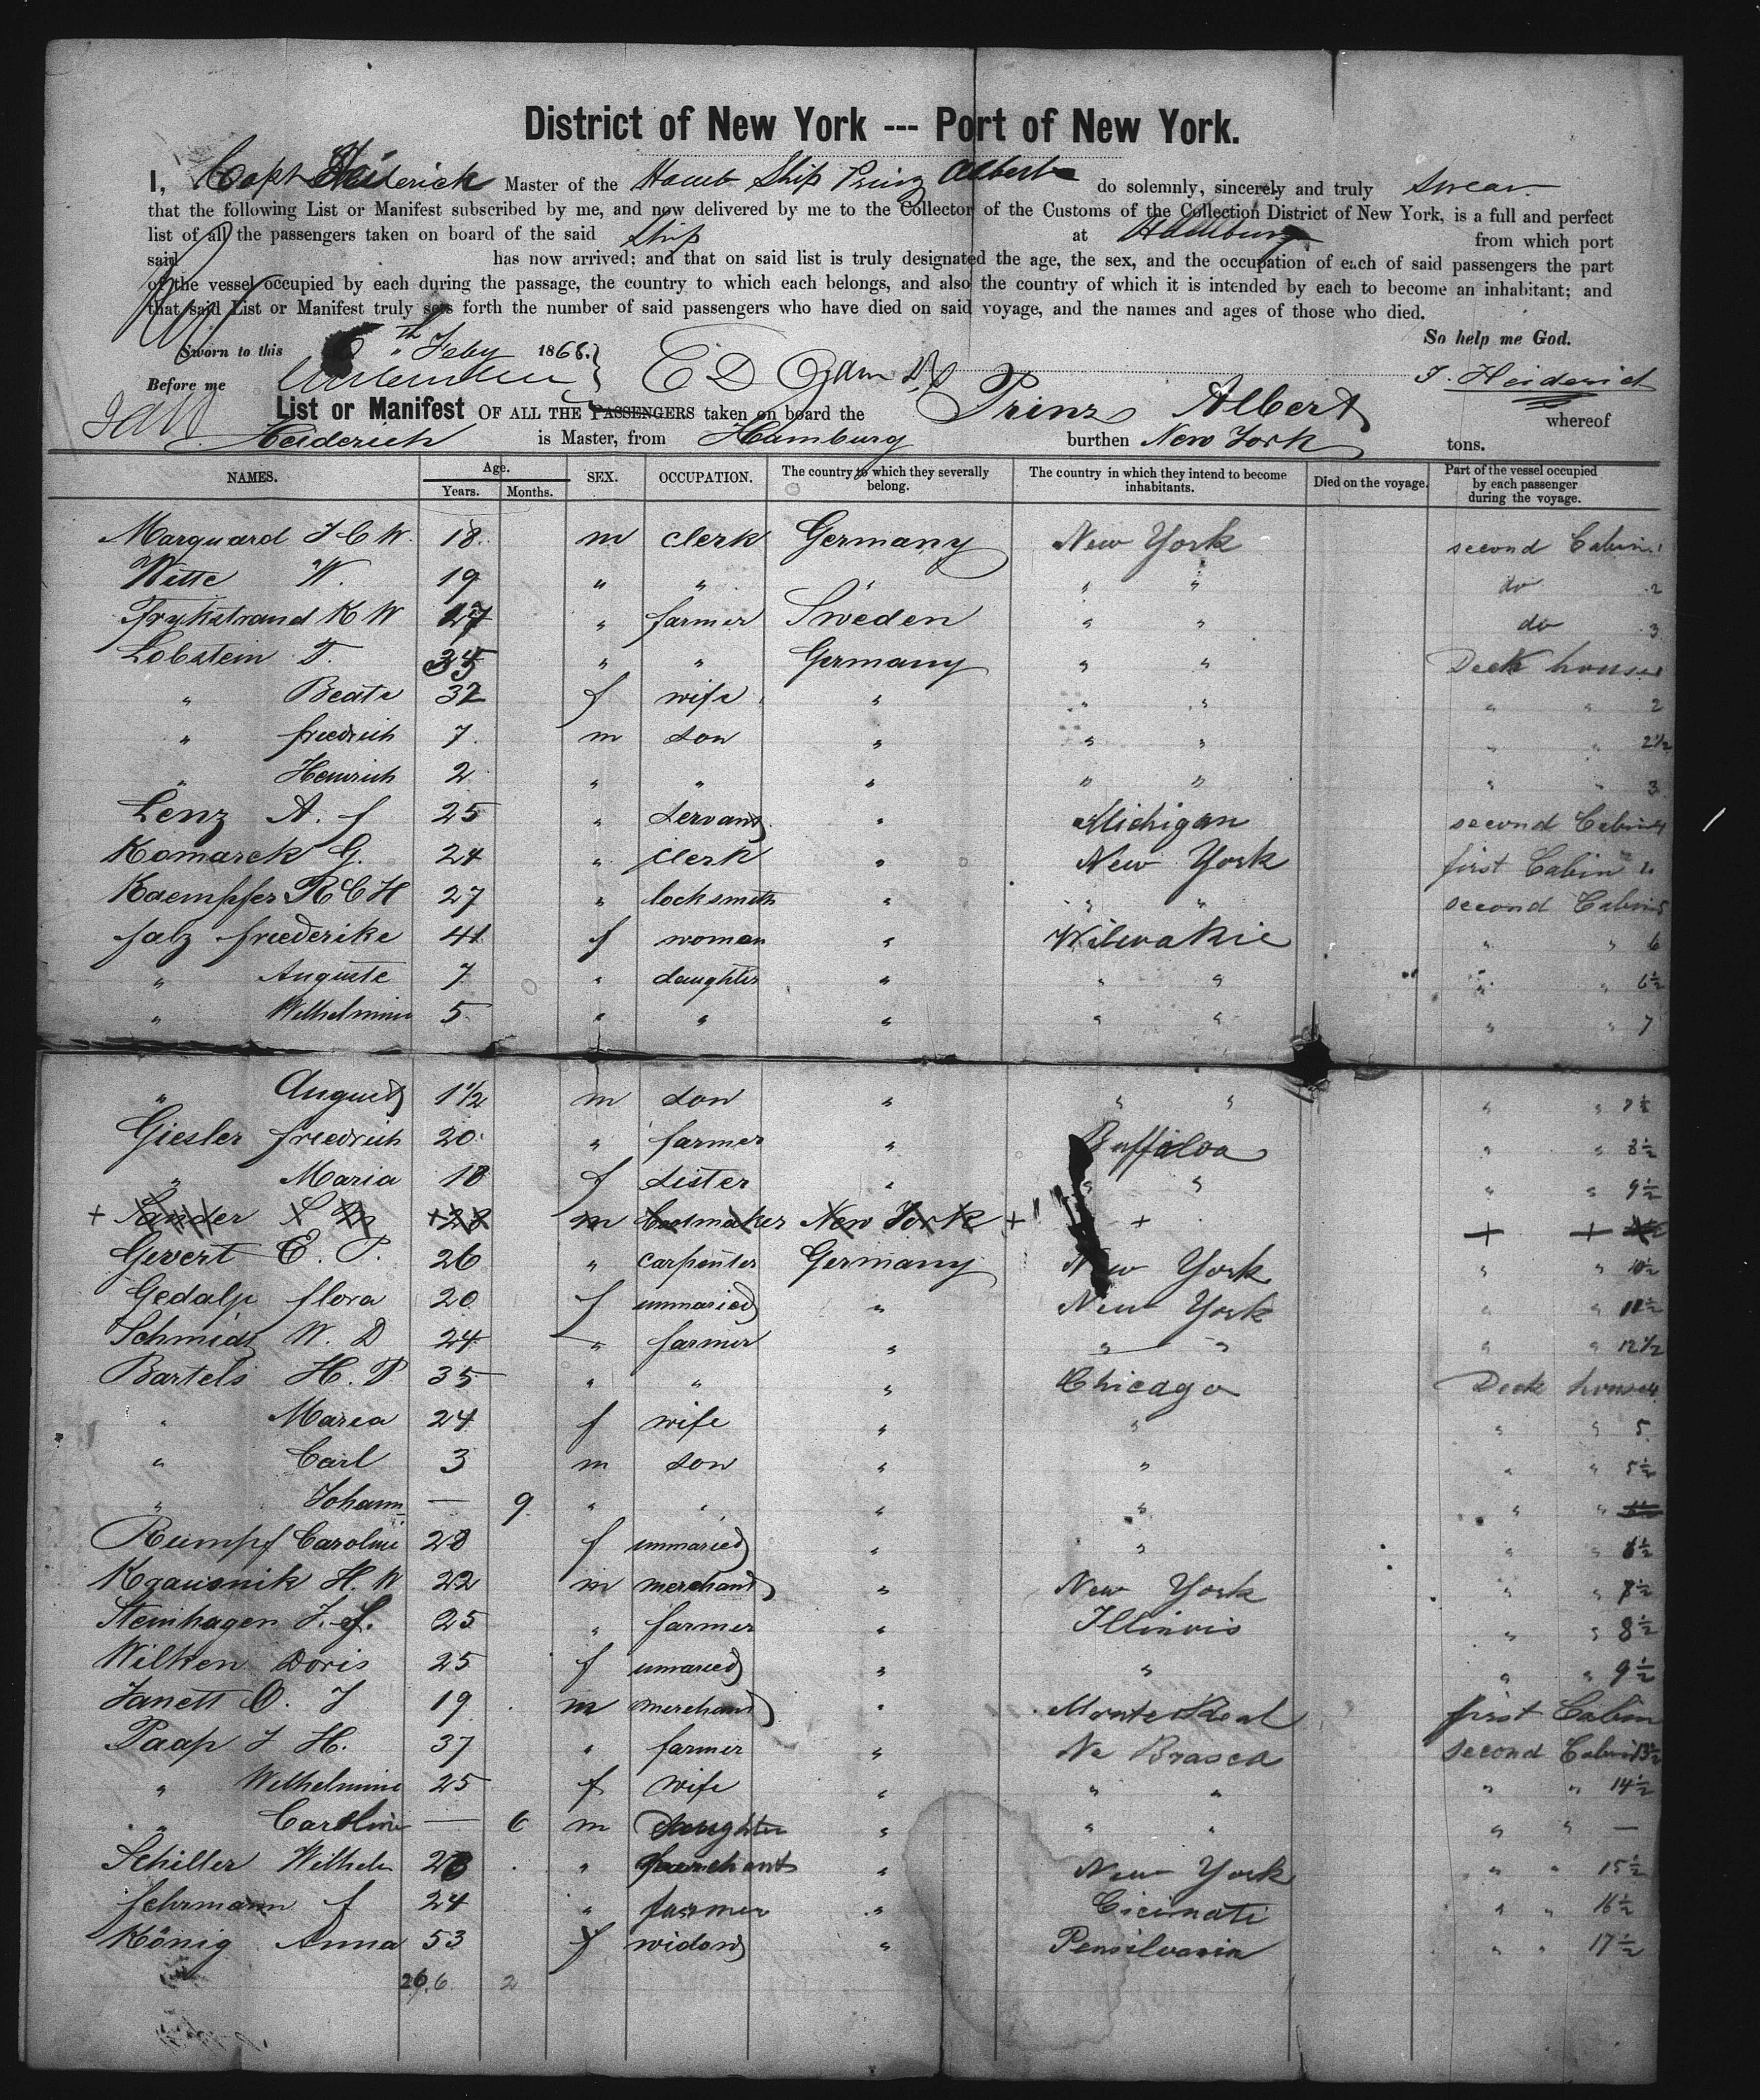 District of New York --- Port of New York.
I, Capt Heiderich Master of the Hamb Ship Prinz Albert do solemnly, sincerely and truly swear
that the following List or Manifest subscribed by me, and now delivered by me to the Collector of the Customs of the Collection District of New York, is a full and perfect
list of all the passengers taken on board of the said Ship at Hamburg from which port
said has now arrived; and that on said list is truly designated the age, the sex, and the occupation of each of said passengers the part
of the vessel occupied by each during the passage, the country to which each belongs, and also the country of which it is intended by each to become an inhabitant; and
that said List or Manifest truly sets forth the number of said passengers who have died on said voyage, and the names and ages of those who died.
So help me God.
Sworn to this 6th Feby 1868.
Before me
J. Heiderich
List or Manifest OF ALL THE PASSENGERS taken on board the Prinz Albert whereof
Heiderich is Master, from Hamburg burthen New York tons.
NAMES. Age. Years. Months. SEX. OCCUPATION. The country to which they severally belong. The country in which they intend to become inhabitants. Died on the voyage. Part of the vessel occupied by each passenger during the voyage.
Marquard J C W. 18. m clerk Germany New York second Cabin 1
Witte W. 19 " " " " " do 2
Frykstrand K W 27 " farmer Sweden " " do 3
Lobstein T. 35 " " Germany " " Deck house 1
" Beate 32 f wife " " " " " 2
" friedrich 7. m son " " " " " 2 1/2
" Heinrich 2 " " " " " " " 3
Lenz A. f 25 " servant " Michigan second Cabin 4
Komarek G. 24 " clerk " New York first Cabin 1.
Kaempfer R C H 27 " locksmith " " " second Cabin 5
falz friederike 41 f woman " Wilwakie " " 6
" Auguste 7 " daughter " " " " " 6 1/2
" Wilhelmine 5 " " " " " " " 7
" August 1 1/2 m son " " " " " 7 1/2
Giesler friedrich 20. " farmer " Buffaloa " " 8 1/2
" Maria 18 f sister " " " " " 9 1/2
+ Sander 28 m Bootmaker New York + + + +
Gevert E. P. 26 " carpenter Germany New York " " 10 1/2
Gedalje flora 20 f unmaried " New York " " 11 1/2
Schmidt W. D 24 " farmer " " " " " 12 1/2
Bartels H. P 35 " " " Chicago Deck house 4
" Maria 24 f wife " " " " 5
" Carl 3 m son " " " " 5 1/2
" Johann — 9 " " " " " "
Rumpf Caroline 28 f unmaried " " " " 6 1/2
Krausnik H. W 22 m merchant " New York " " 7 1/2
Steinhagen J. f. 25 " farmer " Illinois " " 8 1/2
Wilken Doris 25 f unmaried " " " " 9 1/2
Janett O. J 19 m merchant " Monte Real first Cabin
Paap J H. 37 " farmer " Ne Brasca second Cabin 13 1/2
" Wilhelmine 25 f wife " " " " " 14 1/2
" Caroline — 6 m Daughter " " " " " —
Schiller Wilhelm 28 " merchant " New York " " 15 1/2
fehrmann f 24 " farmer " Cicinnati " " 16 1/2
König Anna 53 f widow " Pensilvania " " 17 1/2
26.6. 2